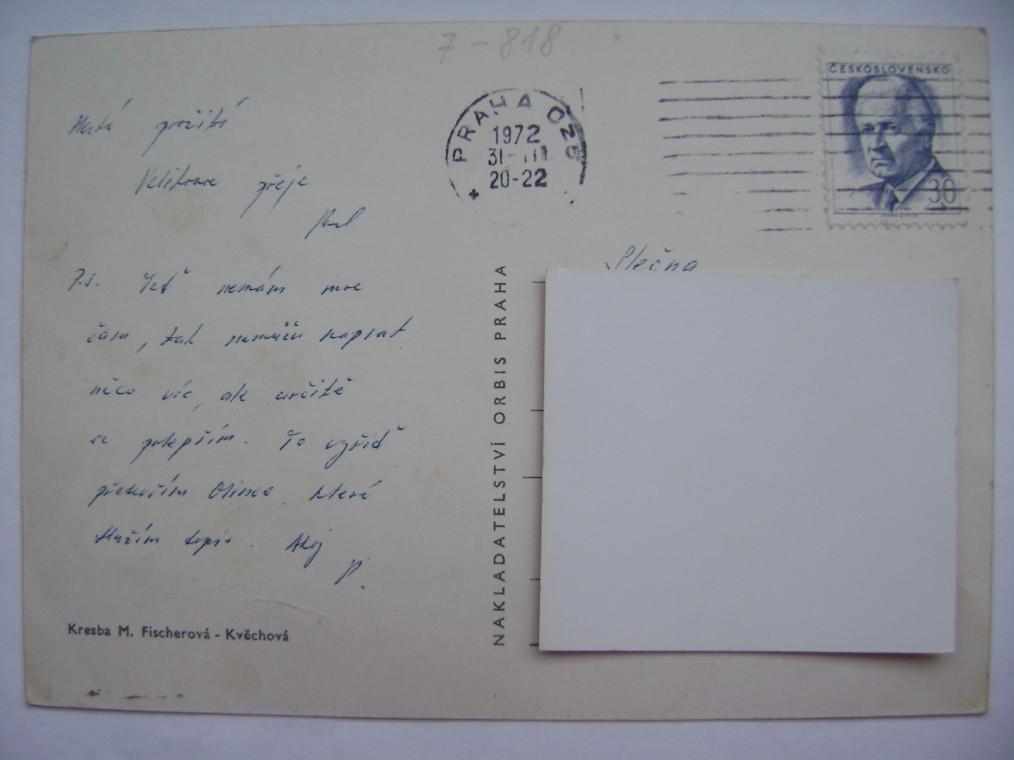 7-818
ČESKOSLOVENSKO
30
PRAHA 025
1972
31-III
20-22
Hezké prožití
Velikonoc přeje
P.S. Teď nemám moc
času, tak nemůžu napsat
něco víc, ale určitě
se polepším. To vyřiď
především Olince, které
dlužím dopis. Ahoj
P.
Slečna
NAKLADATELSTVÍ ORBIS PRAHA
Kresba M. Fischerová - Kvěchová